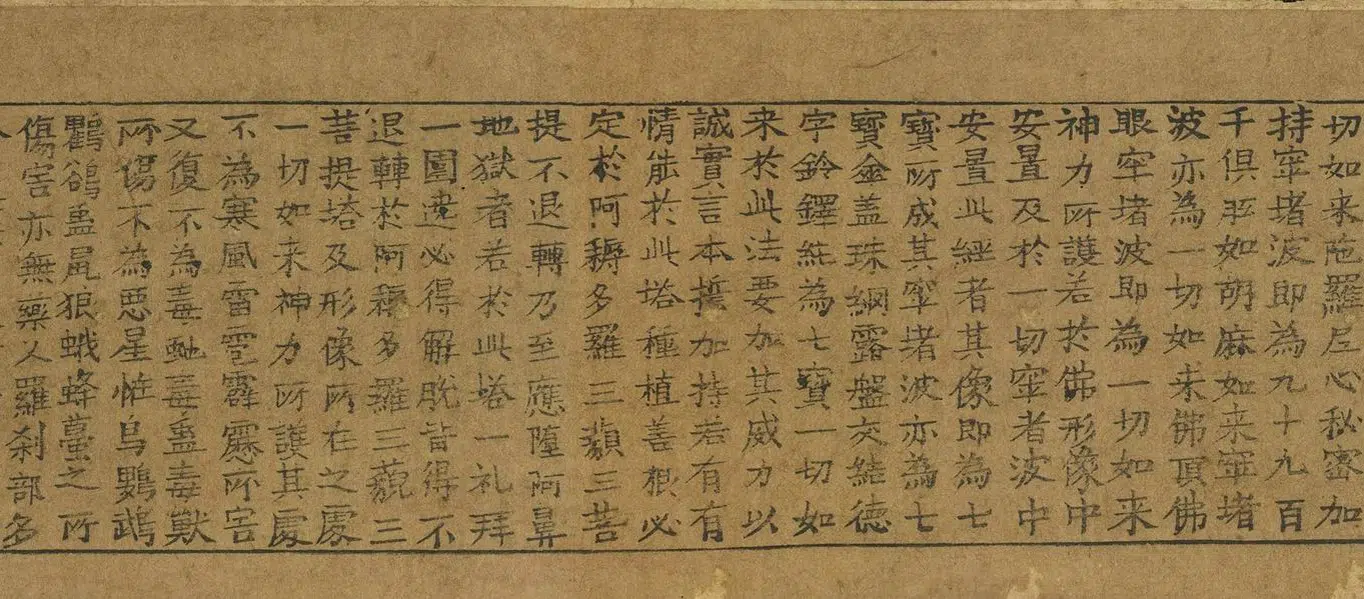 切如来陁羅尼心秘密加
持窣堵波即為九十九百
千俱胝如胡麻如来窣堵
波亦為一切如来佛頂佛
眼窣堵波即為一切如来
神力所護若於佛形像中
安置及於一切窣者波中
安置此經者其像即為七
寳所成其窣堵波亦為七
寳金盖珠網露盤交結德
字鈴鐸純為七寳一切如
来於此法要加其威力以
誠實言本誓加持若有有
情能於此塔種植善根必
定於阿耨多羅三藐三菩
提不退轉乃至應墮阿鼻
地獄者若於此塔一礼拜
一圍遶必得解脫皆得不
退轉於阿耨多羅三藐三
菩提塔及形像所在之處
一切如来神力所護其處
不為寒風雷雹霹靂所害
又復不為毒虵毒蟲毒獸
所傷不為惡星恠鳥鸚鵡
鸜鵒蟲鼠狼蛾蜂蠆之所
傷害亦無藥叉羅刹部多